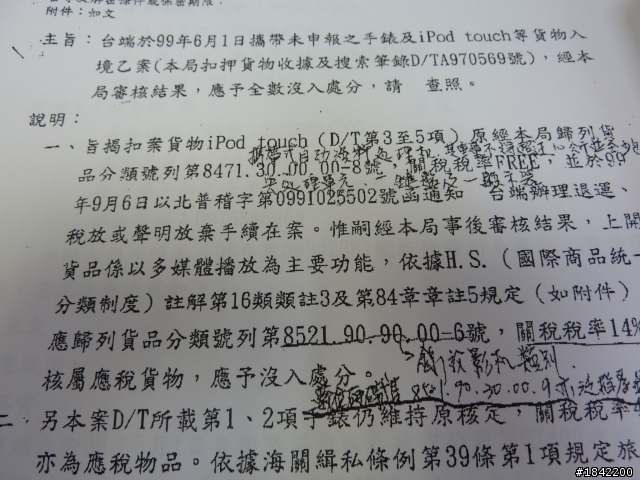 附件：如文
主旨：台端於99年6月1日攜帶未申報之手錶及iPod touch等貨物入
境乙案(本局扣押貨物收據及搜索筆錄D/TA970569號)，經本
局審核結果，應予全數沒入處分，請　查照。
說明：
一、旨揭扣案貨物iPod touch（D/T第3至5項）原經本局歸列貨
攜帶式自動資料處理機
品分類號列第8471.30.00.00-8號，關稅稅率FREE，並於99
年9月6日以北普稽字第0991025502號函通知　台端辦理退運、
稅放或聲明放棄手續在案。惟嗣經本局事後審核結果，上開
貨品係以多媒體播放為主要功能，依據H.S.（國際商品統一
分類制度）註解第16類類註3及第84章章註5規定（如附件）
應歸列貨品分類號列第8521.90.90.00-6號，關稅稅率14%
核屬應稅貨物，應予沒入處分。
8521.90.30.00.9
二、另本案D/T所載第1、2項手錶仍維持原核定，關稅稅率
亦為應稅物品。依據海關緝私條例第39條第1項規定旅
#1842200